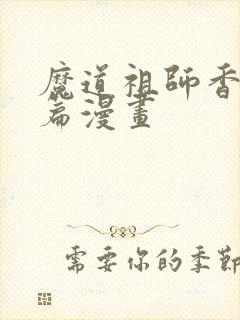 魔道祖師香
篇漫畫
需要你的季節